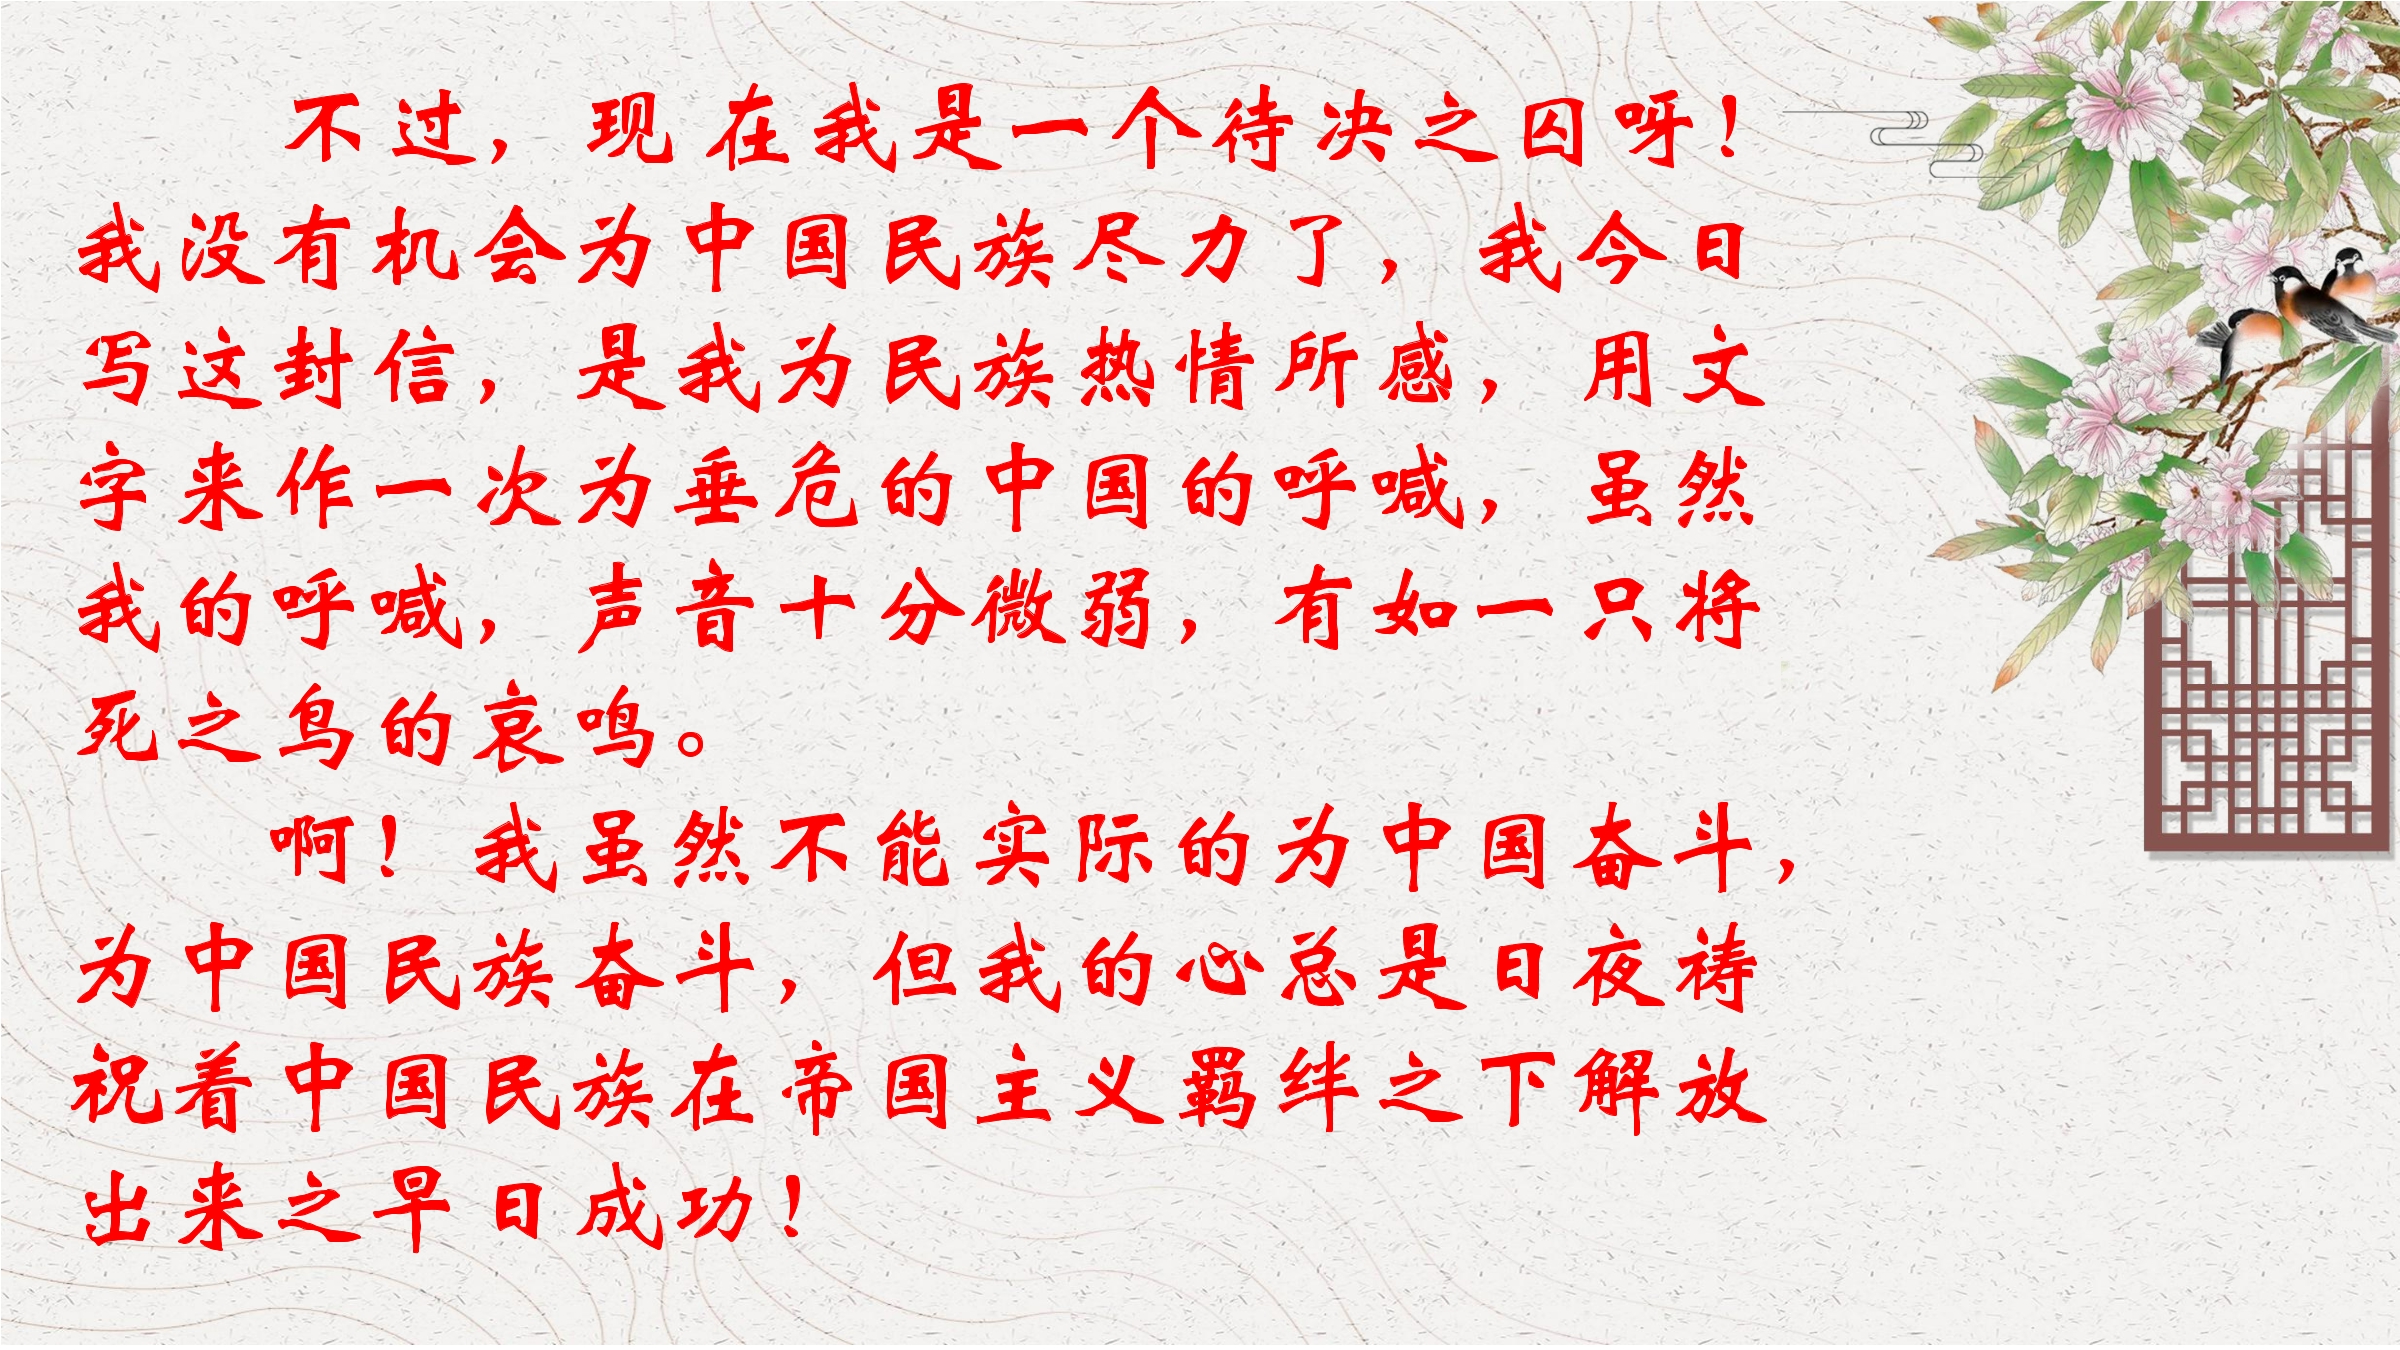 不过，现在我是一个待决之囚呀！
我没有机会为中国民族尽力了，我今日
写这封信，是我为民族热情所感，用文
字来作一次为垂危的中国的呼喊，虽然
我的呼喊，声音十分微弱，有如一只将
死之鸟的哀鸣。
啊！我虽然不能实际的为中国奋斗，
为中国民族奋斗，但我的心总是日夜祷
祝着中国民族在帝国主义羁绊之下解放
出来之早日成功！